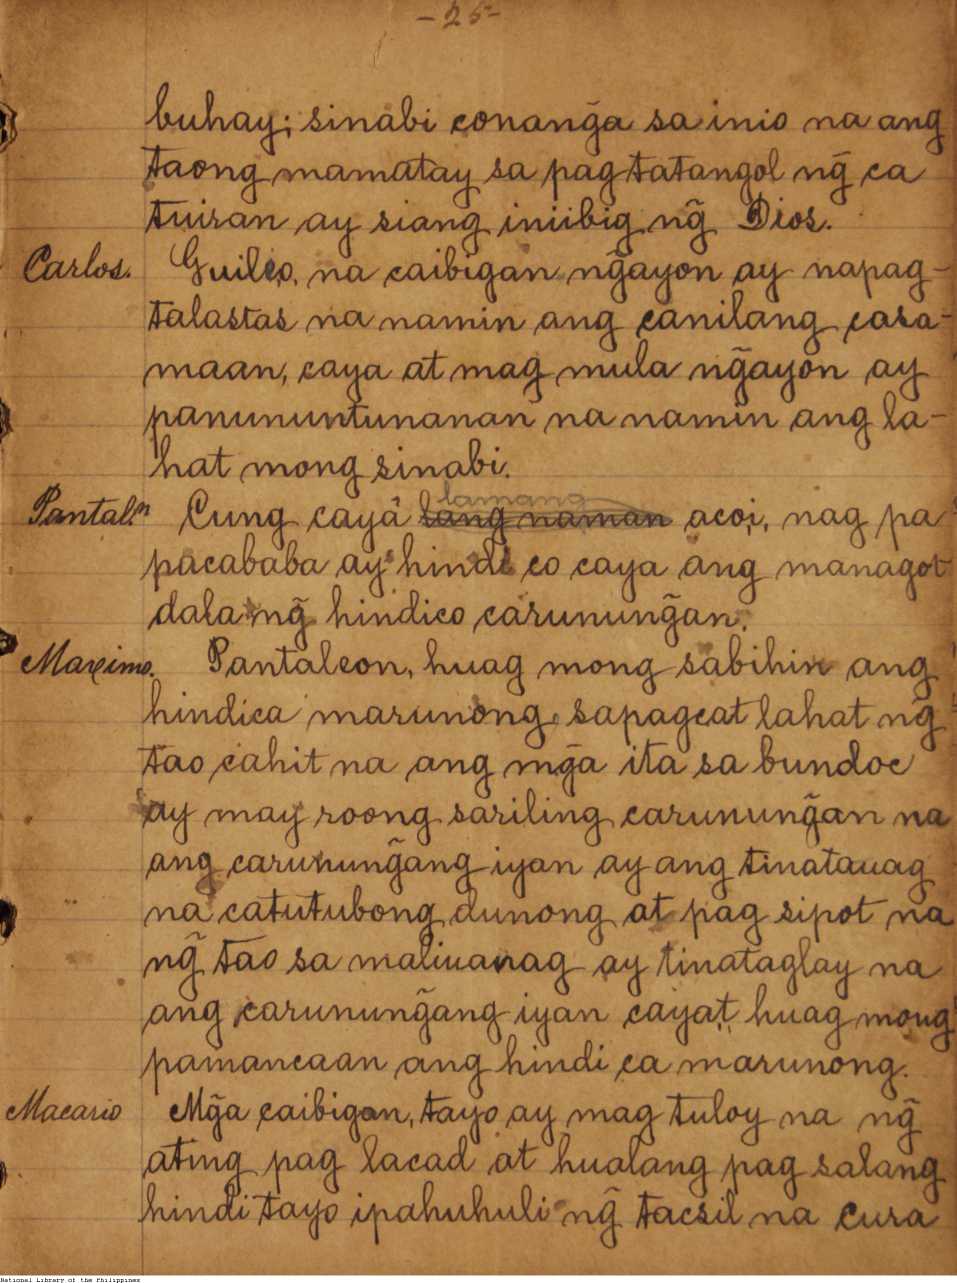 -25-
buhay; sinabi conang̃a sa inio na ang
taong mamatay sa pag tatangol ng̃ ca
tuiran ay siang iniibig ng̃ Dios.
Carlos. Guileo, na caibigan ng̃ayon ay napag-
talastas na namin ang canilang casa-
maan, caya at mag mula ng̃ayon ay
panununtunanan na namin ang la-
hat mong sinabi.
lamang
Pantal.n Cung caya lang naman acoi, nag pa
pacababa ay hindi co caya ang managot
dala ng̃ hindico carunung̃an.
Maximo. Pantaleon, huag mong sabihin ang
hindica marunong, sapagcat lahat ng̃
tao cahit na ang mg̃a ita sa bundoc
ay may roong sariling carunung̃an na
ang carunung̃ang iyan ay ang tinatauag
na catutubong dunong at pag sipot na
ng̃ tao sa maliuanag ay tinataglay na
ang carunung̃ang iyan cayat, huag mong
pamancaan ang hindi ca marunong.
Macario Mg̃a caibigan, tayo ay mag tuloy na ng̃
ating pag lacad at hualang pag salang
hindi tayo ipahuhuli ng̃ tacsil na Cura
National Library of the Philippines